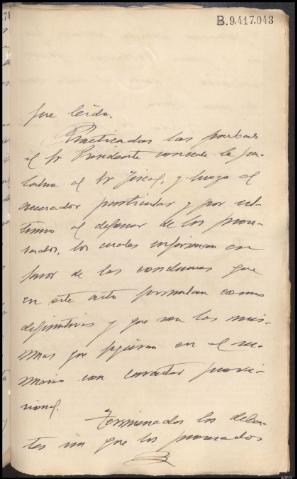 B.9.417.043
fue leida.
Practicadas las pruebas
el Sr Presidente concede la pa-
labra al Sr Fiscal, y luego al
acusador particular y por ul-
timo al defensor de los proce-
sados, los cuales informan en
favor de las conclusiones que
en este acto formulan como
definitivas y que son las mis-
mas que figuran en el su-
mario con caracter provi-
sional.
Terminados los deba-
tes sin que los procesados